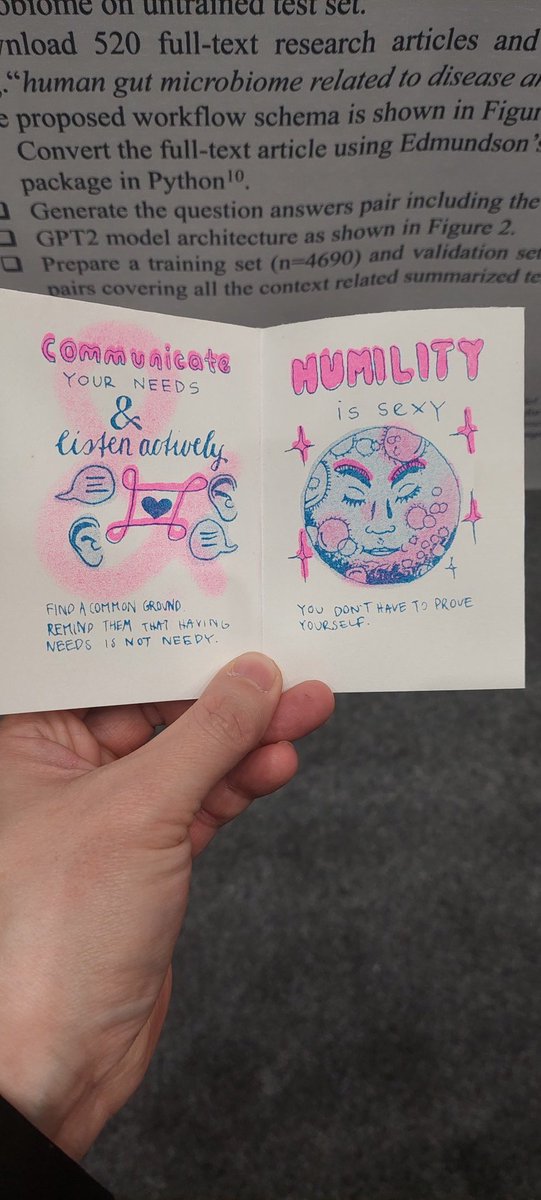 obiome on untrained test set.
nload 520 full-text research articles and
"human gut microbiome related to disease
proposed workflow schema is shown in Figur
Convert the full-text article using Edmundson's
package in Python10.
Generate the question answers pair including the
GPT2 model architecture as shown in Figure 2.
Prepare a training set (n=4690) and validation set
pairs covering all the context related summarized
COMMUNICATE
YOUR NEEDS
&
listen actively
FIND A COMMON GROUND.
REMIND THEM THAT HAVING
NEEDS IS NOT NEEDY.
HUMILITY
is sexy
YOU DON'T HAVE TO PROVE
YOURSELF.